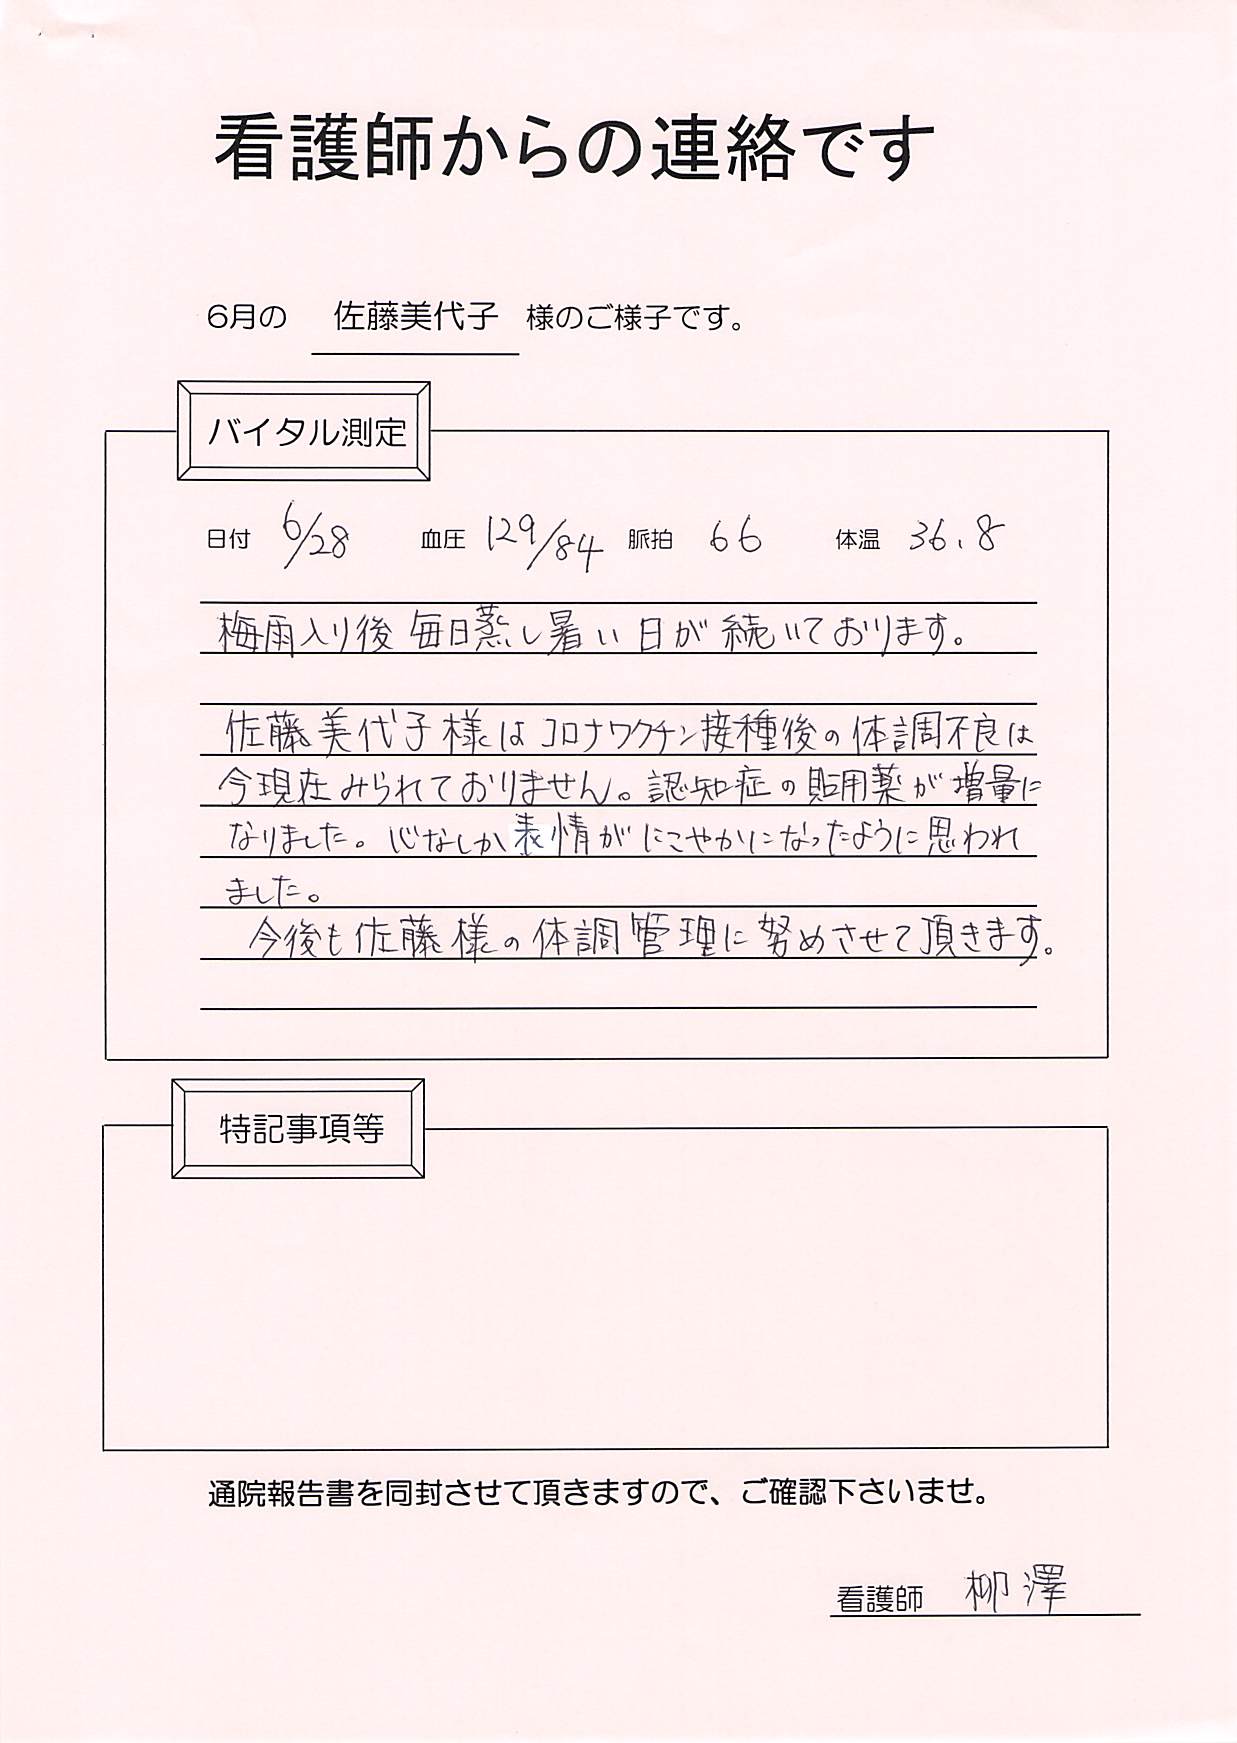 看護師からの連絡です
6月の 佐藤美代子 様のご様子です。
バイタル測定
日付 6/28 血圧 129/84 脈拍 66 体温 36.8
梅雨入り後毎日蒸し暑い日が続いております。
佐藤美代子様はコロナワクチン接種後の体調不良は
今現在みられておりません。認知症の貼用薬が増量に
なりました。心なしか表情がにこやかになったように思われ
ました。
今後も佐藤様の体調管理に努めさせて頂きます。
特記事項等
通院報告書を同封させて頂きますので、ご確認下さいませ。
看護師 柳澤